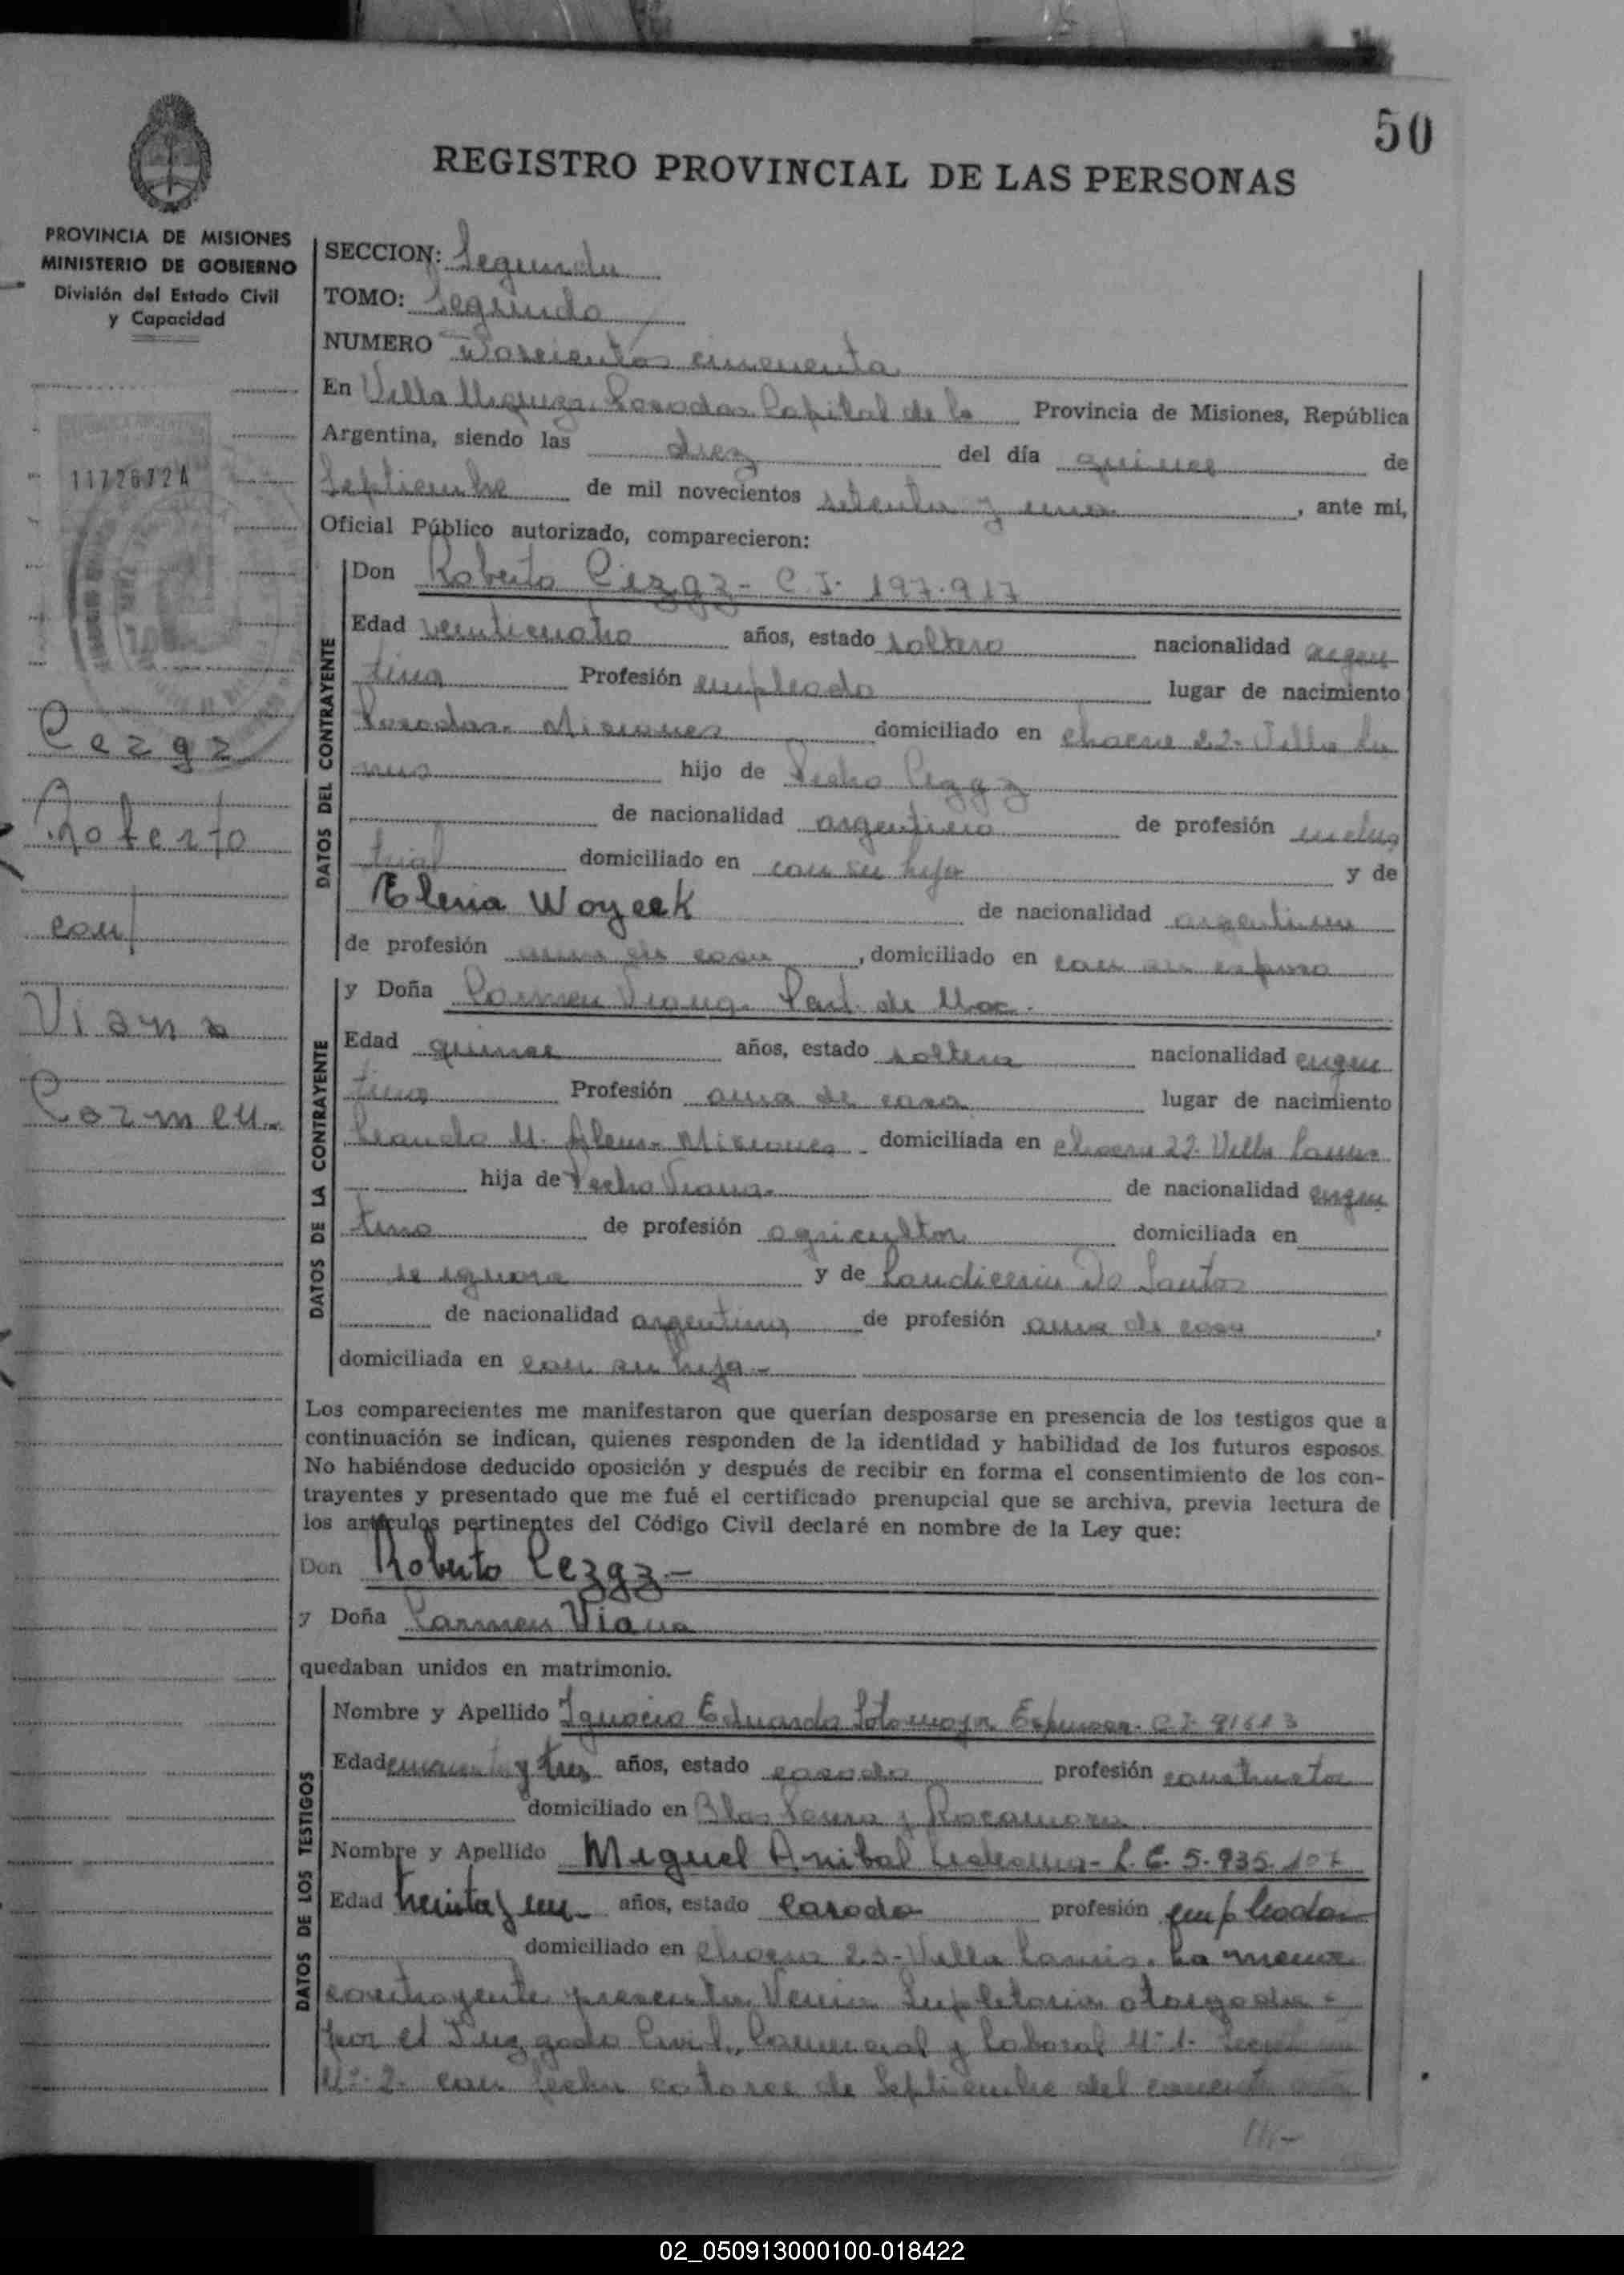 50
REGISTRO PROVINCIAL DE LAS PERSONAS
PROVINCIA DE MISIONES
MINISTERIO DE GOBIERNO
División del Estado Civil
y Capacidad
1172672A
Cezgz
Roberto
con
Viana
Carmen.
SECCION: Segunda
TOMO: Segundo
NUMERO Doscientos cincuenta
En Villa Urquiza Posadas Capital de la Provincia de Misiones, República
Argentina, siendo las diez del día quince de
Septiembre de mil novecientos setenta y uno , ante mí,
Oficial Público autorizado, comparecieron:
DATOS DEL CONTRAYENTE
Don Roberto Cezgz - C.I. 197.917
Edad veinticuatro años, estado soltero nacionalidad argen
tina Profesión empleado lugar de nacimiento
Posadas - Misiones domiciliado en chacra 22 - Villa La
nus hijo de Pedro Cezgz
de nacionalidad argentino de profesión indus
trial domiciliado en con su hijo y de
Elena Woyeek de nacionalidad argentina
de profesión ama de casa , domiciliado en con su esposo
DATOS DE LA CONTRAYENTE
y Doña Carmen Viana - Part. de Nac.
Edad quince años, estado soltera nacionalidad argen
tina Profesión ama de casa lugar de nacimiento
Leandro N. Alem - Misiones domiciliada en chacra 22 - Villa Lanus
hija de Pedro Viana - de nacionalidad argen
tino de profesión agricultor domiciliada en
se ignora y de Do Santos
de nacionalidad argentina de profesión ama de casa ,
domiciliada en con su hija -
Los comparecientes me manifestaron que querían desposarse en presencia de los testigos que a
continuación se indican, quienes responden de la identidad y habilidad de los futuros esposos.
No habiéndose deducido oposición y después de recibir en forma el consentimiento de los con-
trayentes y presentado que me fué el certificado prenupcial que se archiva, previa lectura de
los artículos pertinentes del Código Civil declaré en nombre de la Ley que:
Don Roberto Cezgz -
y Doña Carmen Viana
quedaban unidos en matrimonio.
DATOS DE LOS TESTIGOS
Nombre y Apellido Ignacio Eduardo Sotomayor Espinosa - C.I. 91613
Edad y tres años, estado casado profesión constructor
domiciliado en Blas Parera y Rocamora
Nombre y Apellido Miguel Anibal Ledesma - L.E. 5.935.107
Edad treinta y un años, estado casado profesión empleado
domiciliado en chacra 23 - Villa Lanus. La menor
contrayente presenta Venia Supletoria otorgada -
por el Juzgado Civil, Comercial y Laboral Nº 1 -
Nº 2 - con fecha catorce de Septiembre del corriente año
///-
02_050913000100-018422